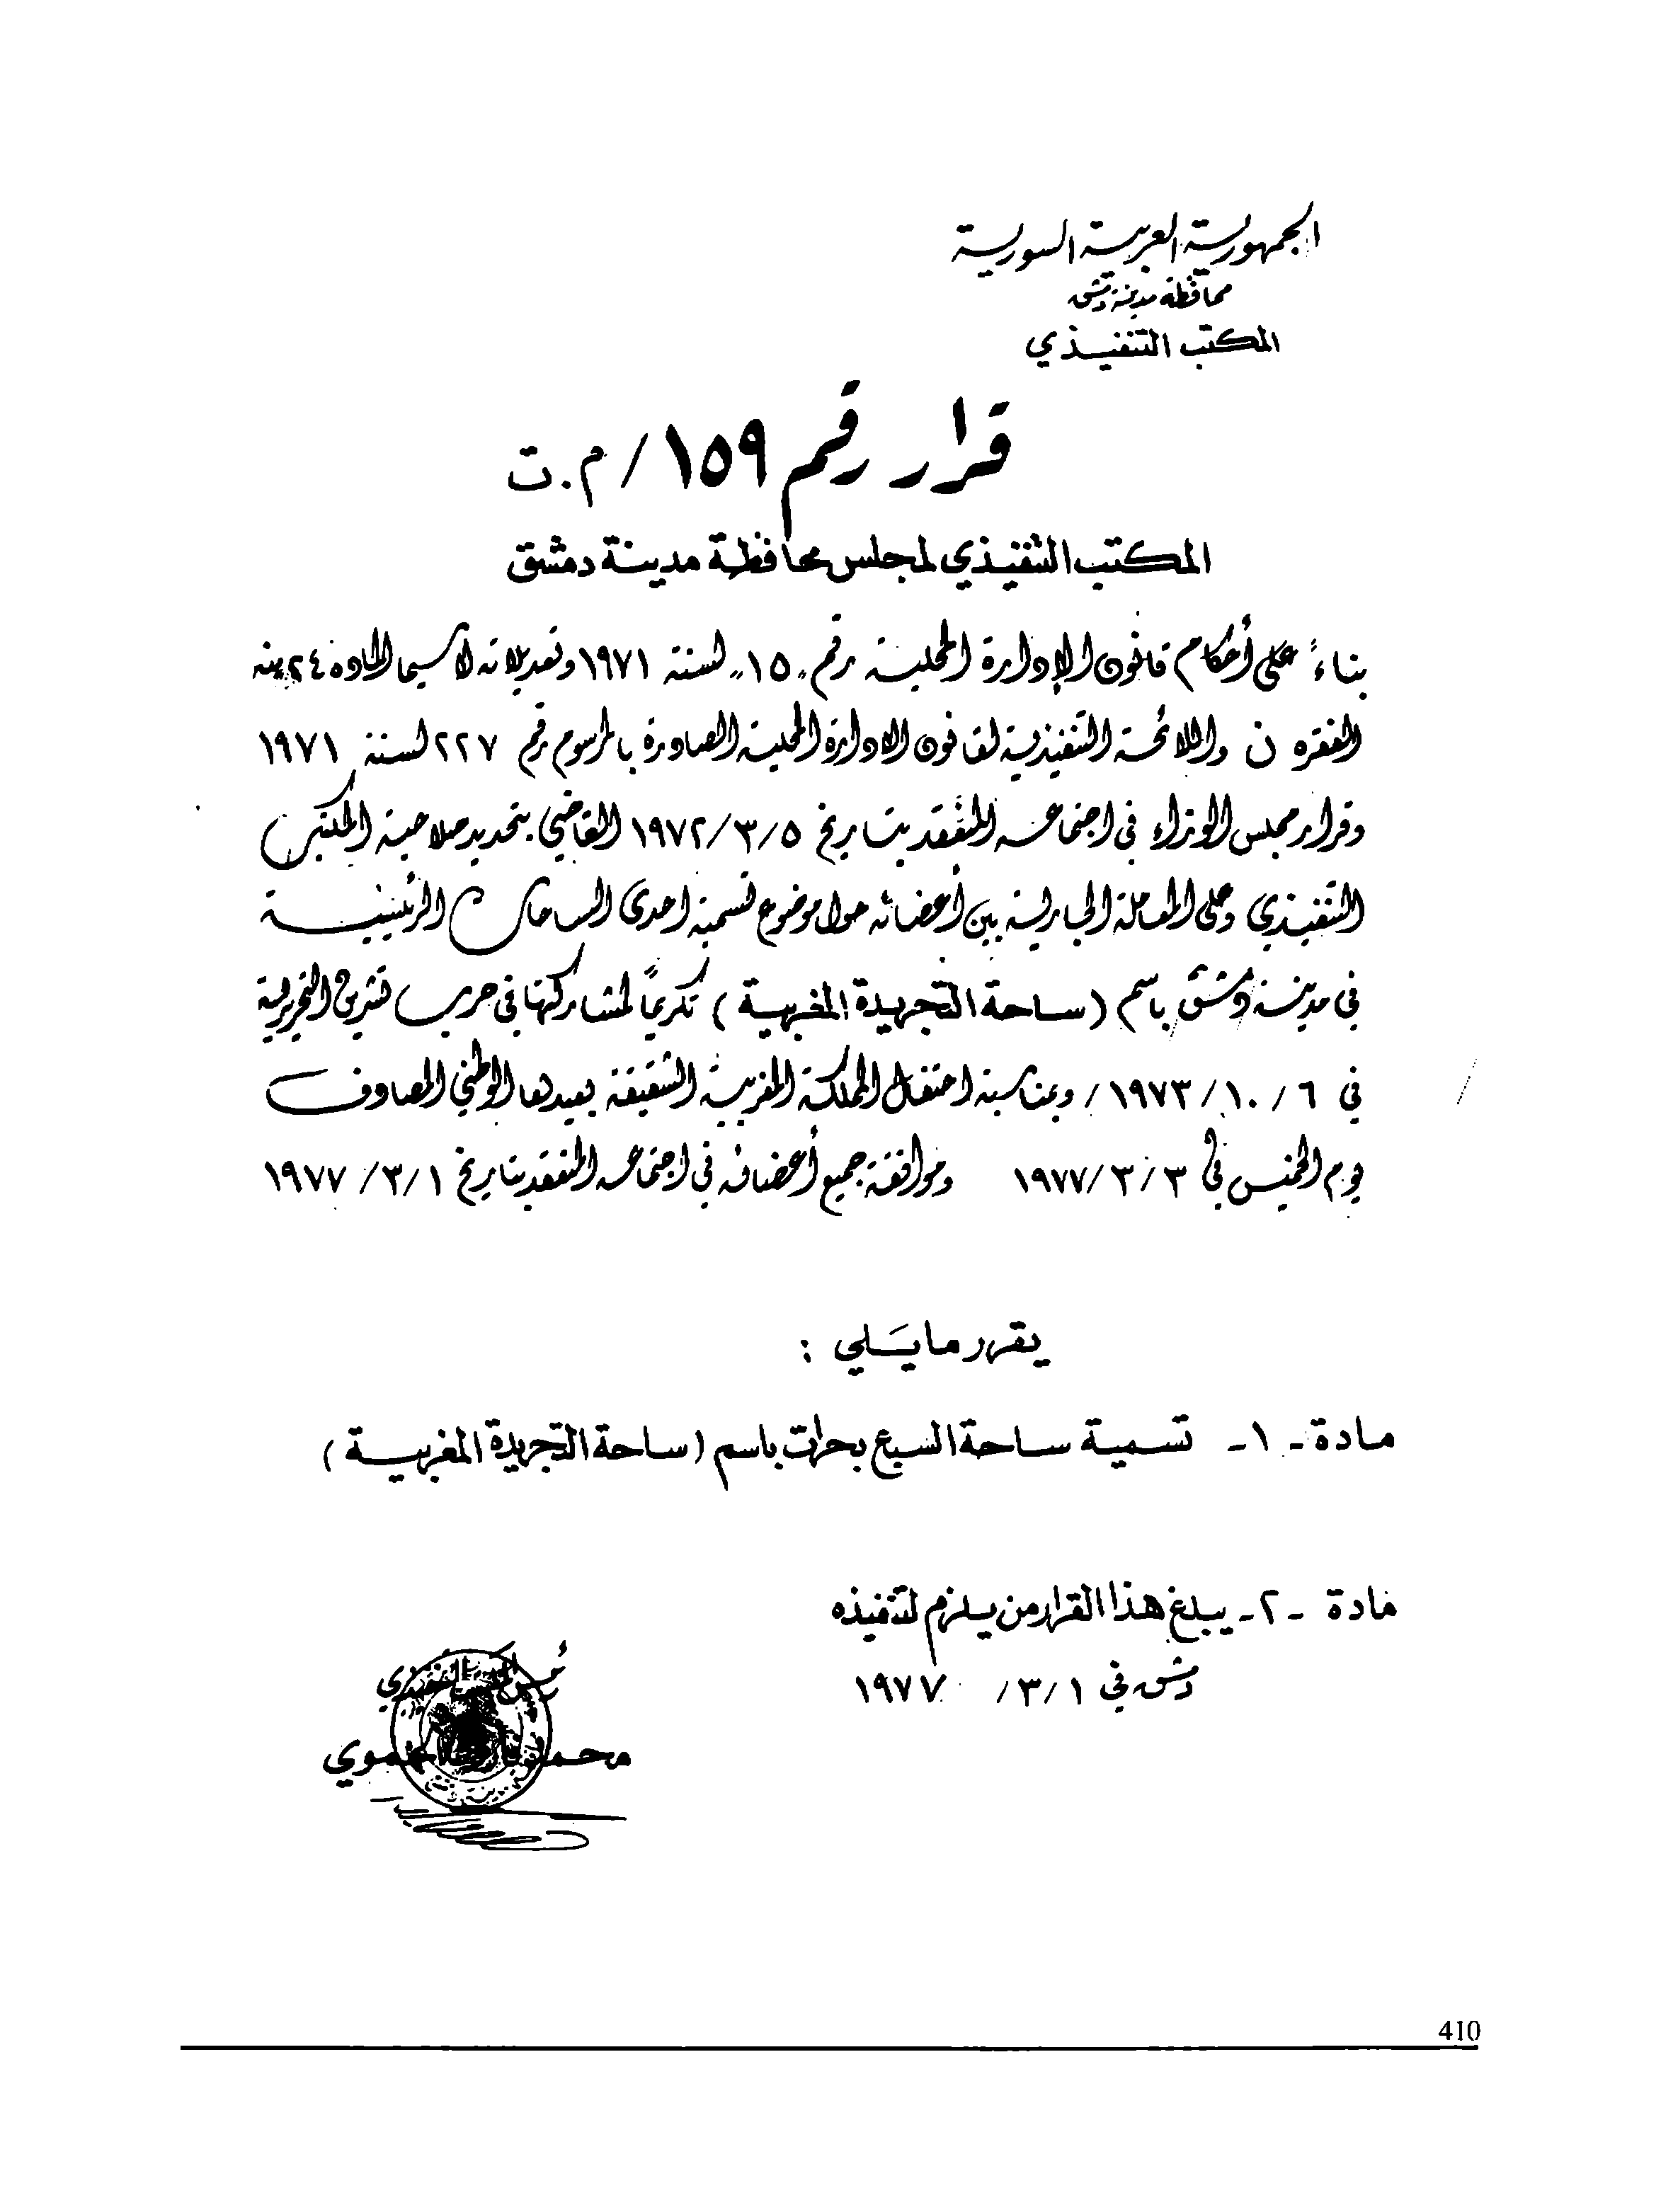 الجمهورية العربية السورية
محافظة مدينة دمشق
المكتب التنفيذي
قرار رقم ١٥٩/ م.ت
المكتب التنفيذي لمجلس محافظة مدينة دمشق
بناءً على أحكام قانون الإدارة المحلية رقم "١٥" لسنة ١٩٧١ وتعديلاته لاسيما المادة ٢٤ منه
الفقره ن واللائحة التنفيذية لقانون الادارة المحلية الصادرة بالمرسوم رقم ٢٢٧ لسنة ١٩٧١
وقرار مجلس الوزراء في اجتماعه المنعقد بتاريخ ٥/٣/١٩٧٢ القاضي بتحديد صلاحية المكتب
التنفيذي وعلى المعاملة الجارية بين أعضائه حول موضوع تسمية احدى الساحات الرئيسية
في مدينة دمشق باسم (ساحة التجريدة المغربية) تكريماً لمشاركتها في حرب تشرين التحريرية
في ٦/١٠/١٩٧٣/ وبمناسبة احتفال المملكة المغربية الشقيقة بعيدها الوطني المصادف
يوم الخميس في ٣/٣/١٩٧٧ وموافقة جميع أعضائه في اجتماعه المنعقد بتاريخ ١/٣/١٩٧٧
يقرر مايَلي :
مادة -١- تسمية ساحة السبع بحرات باسم (ساحة التجريدة المغربية)
مادة -٢- يبلغ هذا القرار من يلزم لتنفيذه
دمشق في ١/٣/ ١٩٧٧
رئيس المكتب التنفيذي
محمد الحموي
410